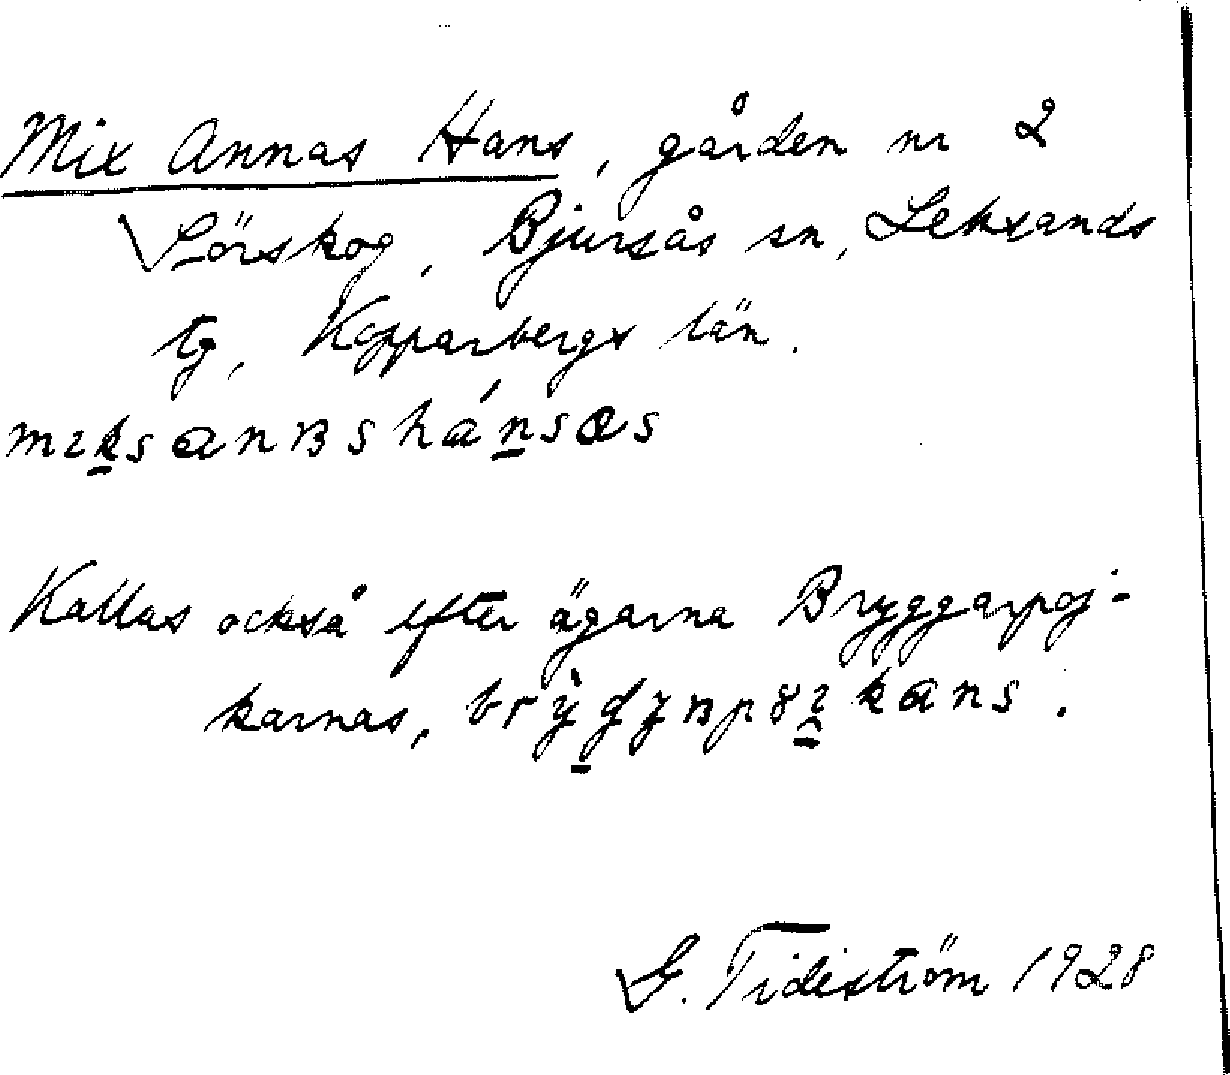 Mix Annas Hans, gården nr 2
Sörskog, Bjursås sn, Leksands
tg, Kopparbergs län.
mıksanʙshánsas
Kallas också efter ägarna Bryggarpoj-
karnas,
G. Tideström 1928